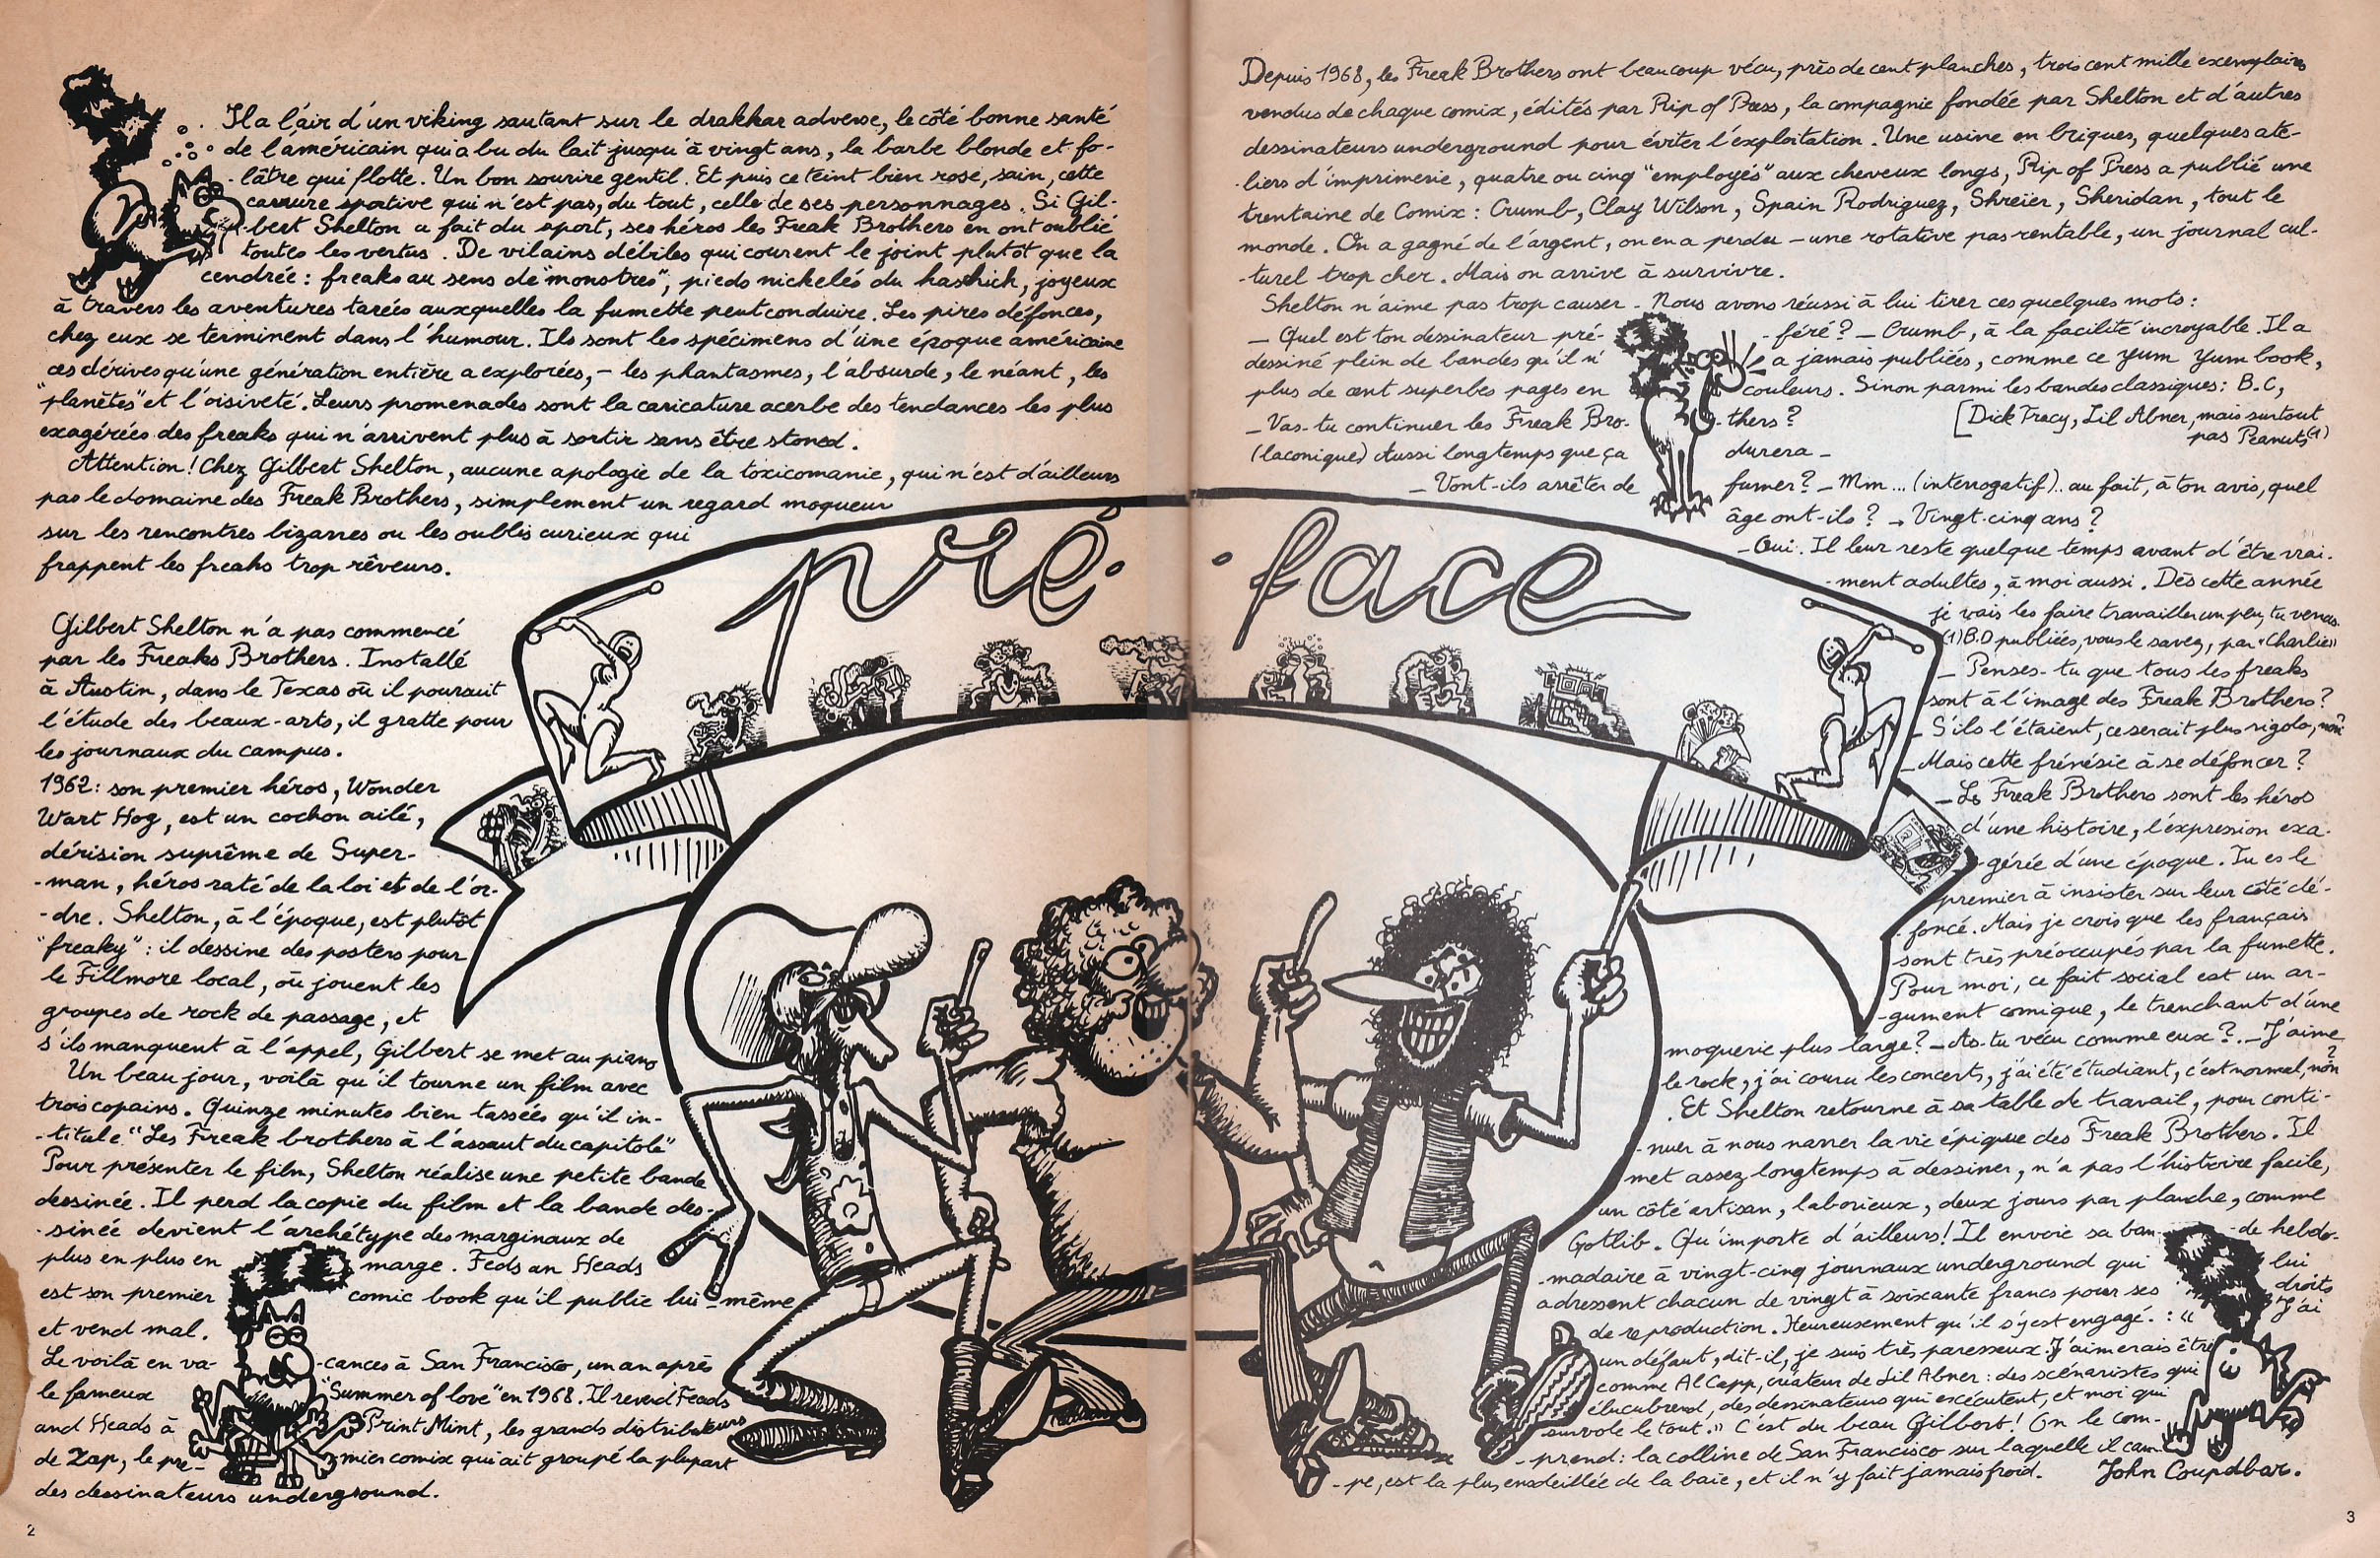 Il a l'air d'un viking sautant sur le drakkar adverse, le côté bonne santé
de l'américain qui a bu du lait jusqu'à vingt ans, la barbe blonde et fo-
-lâtre qui flotte. Un bon sourire gentil. Et puis ce teint bien rose, sain, cette
carrure sportive qui n'est pas, du tout, celle de ses personnages. Si Gil-
-bert Shelton a fait du sport, ses héros les Freak Brothers en ont oublié
toutes les vertus. De vilains débiles qui courent le joint plutôt que la
cendrée : freaks au sens de "monstres", pieds nickelés du haschich, joyeux
à travers les aventures tarées auxquelles la fumette peut conduire. Les pires défonces,
chez eux se terminent dans l'humour. Ils sont les spécimens d'une époque américaine
ces dérives qu'une génération entière a explorées, - les phantasmes, l'absurde, le néant, les
"planètes" et l'oisiveté. Leurs promenades sont la caricature acerbe des tendances les plus
exagérées des freaks qui n'arrivent plus à sortir sans être stoned.
Attention ! Chez Gilbert Shelton, aucune apologie de la toxicomanie, qui n'est d'ailleurs
pas le domaine des Freak Brothers, simplement un regard moqueur
sur les rencontres bizarres ou les oublis curieux qui
frappent les freaks trop rêveurs.
Gilbert Shelton n'a pas commencé
par les Freaks Brothers. Installé
à Austin, dans le Texas où il poursuit
l'étude des beaux-arts, il gratte pour
les journaux du campus.
1962 : son premier héros, Wonder
Wart Hog, est un cochon ailé,
dérision suprême de Super-
-man, héros raté de la loi et de l'or-
-dre. Shelton, à l'époque, est plutôt
"freaky" : il dessine des posters pour
le Fillmore local, où jouent les
groupes de rock de passage, et
s'ils manquent à l'appel, Gilbert se met au piano
Un beau jour, voilà qu'il tourne un film avec
trois copains. Quinze minutes bien tassées qu'il in-
-titule "Les Freak brothers à l'assaut du capitole"
Pour présenter le film, Shelton réalise une petite bande
dessinée. Il perd la copie du film et la bande des-
-sinée devient l'archétype des marginaux de
plus en plus en marge. Feds an Heads
est son premier comic book qu'il publie lui-même
et vend mal.
Le voilà en va- -cances à San Francisco, un an après
le fameux "Summer of love" en 1968. Il revend Feads
and Heads à Print Mint, les grands distributeurs
de Zap, le pre- -mier comix qui ait groupé la plupart
des dessinateurs underground.
2
pré-face
Depuis 1968, les Freak Brothers ont beaucoup vécu, près de cent planches, trois cent mille exemplaires
vendus de chaque comix, édités par Rip of Press, la compagnie fondée par Shelton et d'autres
dessinateurs underground pour éviter l'exploitation. Une usine en briques, quelques ate-
-liers d'imprimerie, quatre ou cinq "employés" aux cheveux longs, Rip of Press a publié une
trentaine de Comix : Crumb, Clay Wilson, Spain Rodriguez, Shreier, Sheridan, tout le
monde. On a gagné de l'argent, on en a perdu - une rotative pas rentable, un journal cul-
-turel trop cher. Mais on arrive à survivre.
Shelton n'aime pas trop causer - Nous avons réussi à lui tirer ces quelques mots :
- Quel est ton dessinateur pré- -féré ? - Crumb, à la facilité incroyable. Il a
dessiné plein de bandes qu'il n' a jamais publiées, comme ce Yum Yum book,
plus de cent superbes pages en couleurs. Sinon parmi les bandes classiques : B.C,
[Dick Tracy, Lil Abner, mais surtout
pas Peanuts (1)
- Vas-tu continuer les Freak Bro- -thers ?
(laconique) Aussi longtemps que ça durera -
- Vont-ils arrêter de fumer ? - Mm... (interrogatif).. au fait, à ton avis, quel
âge ont-ils ? - Vingt-cinq ans ?
- Oui. Il leur reste quelque temps avant d'être vrai-
-ment adultes, à moi aussi. Dès cette année
je vais les faire travailler un peu, tu verras.
(1) B.D publiées, vous le savez, par "Charlie"
- Penses-tu que tous les freaks
sont à l'image des Freak Brothers ?
- S'ils l'étaient, ce serait plus rigolo, non ?
- Mais cette frénésie à se défoncer ?
- Les Freak Brothers sont les héros
d'une histoire, l'expression exa-
-gérée d'une époque. Tu es le
premier à insister sur leur côté dé-
-foncé. Mais je crois que les français
sont très préoccupés par la fumette.
Pour moi, ce fait social est un ar-
-gument comique, le trenchant d'une
moquerie plus large ? - As-tu vécu comme eux ? - J'aime
le rock, j'ai couru les concerts, j'ai été étudiant, c'est normal, non ?
. Et Shelton retourne à sa table de travail, pour conti-
-nuer à nous narrer la vie épique des Freak Brothers. Il
met assez longtemps à dessiner, n'a pas l'histoire facile,
un côté artisan, laborieux, deux jours par planche, comme
Gotlib. Qu'importe d'ailleurs ! Il envoie sa ban- -de hebdo-
-madaire à vingt-cinq journaux underground qui lui
adressent chacun de vingt à soixante francs pour ses droits
de reproduction. Heureusement qu'il s'y est engagé. : "J'ai
un défaut, dit-il, je suis très paresseux. J'aimerais être
comme Al Capp, créateur de Lil Abner : des scénaristes qui
élucubrent, des dessinateurs qui exécutent, et moi qui
survole le tout." C'est du beau Gilbert ! On le com-
-prend : la colline de San Francisco sur laquelle il cam-
-pe, est la plus ensoleillée de la baie, et il n'y fait jamais froid.
John Coupdbar.
3